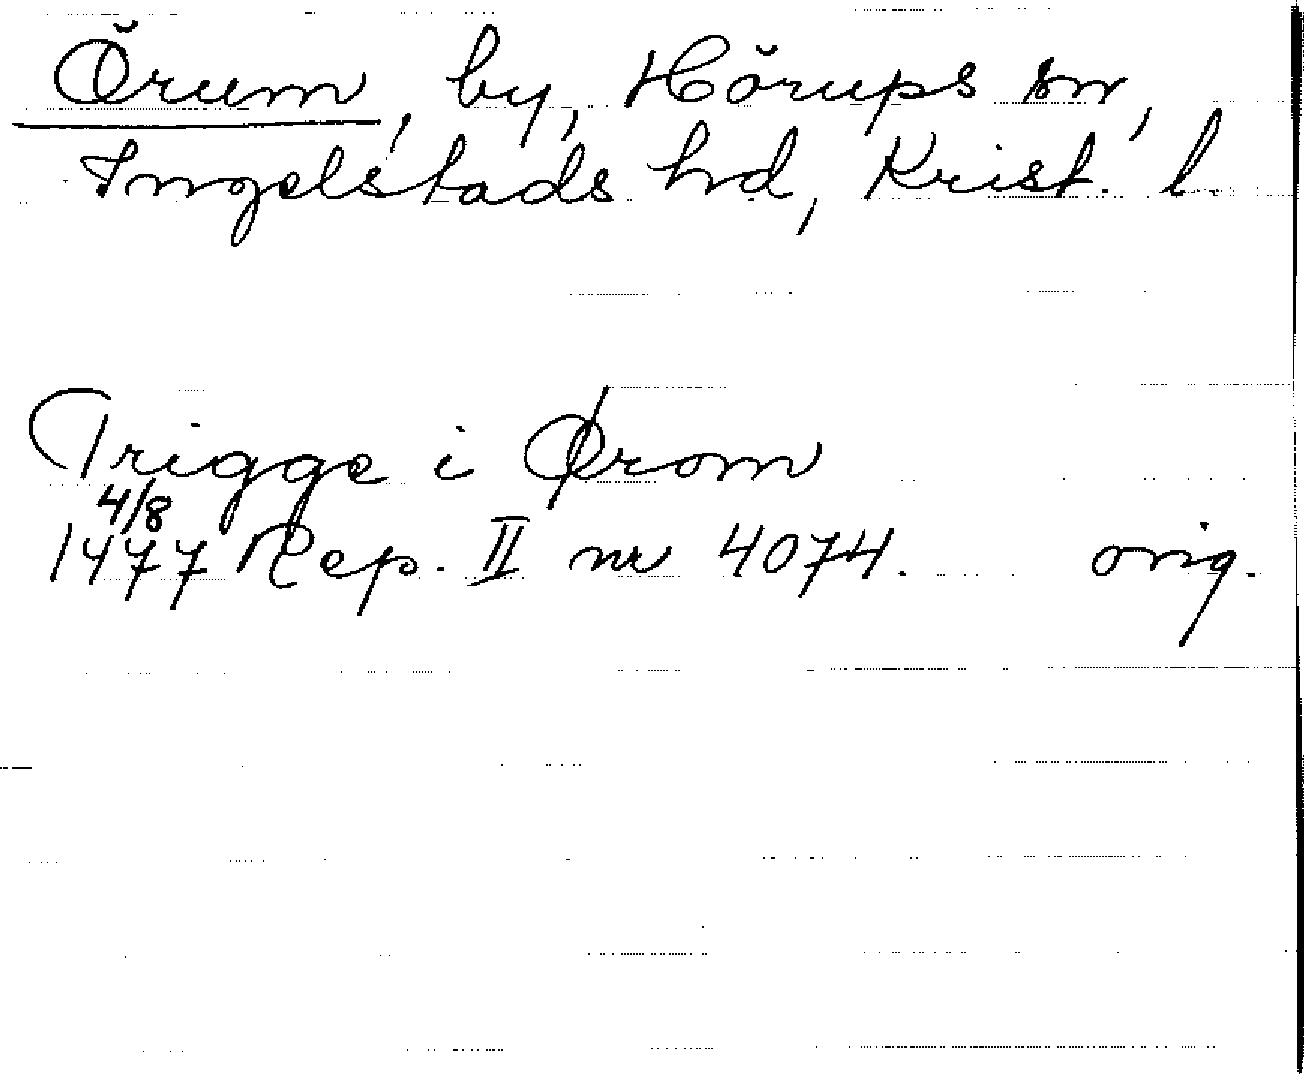 Örum, by, Hörups sn,
Ingelstads hd, Krist. l.
Trigge i Ørom
4/8
1477 Rep. II nr 4074. orig.